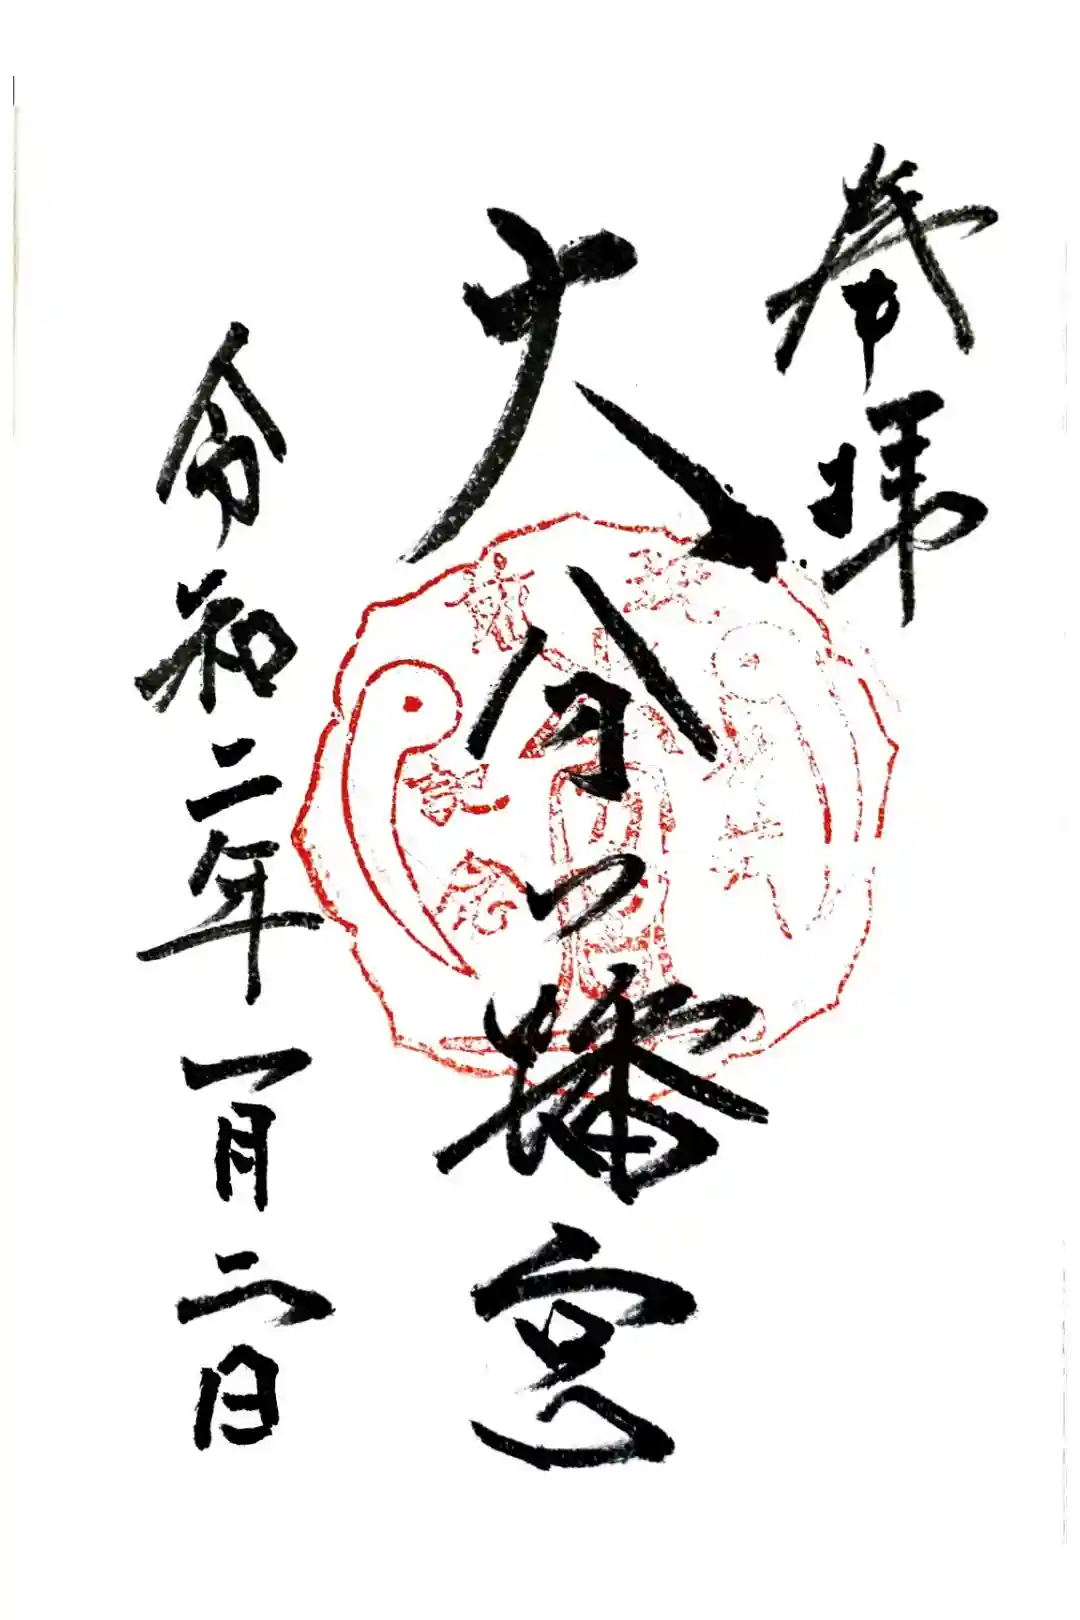 奉拝
大分八幡宮
令和二年一月二日
記念